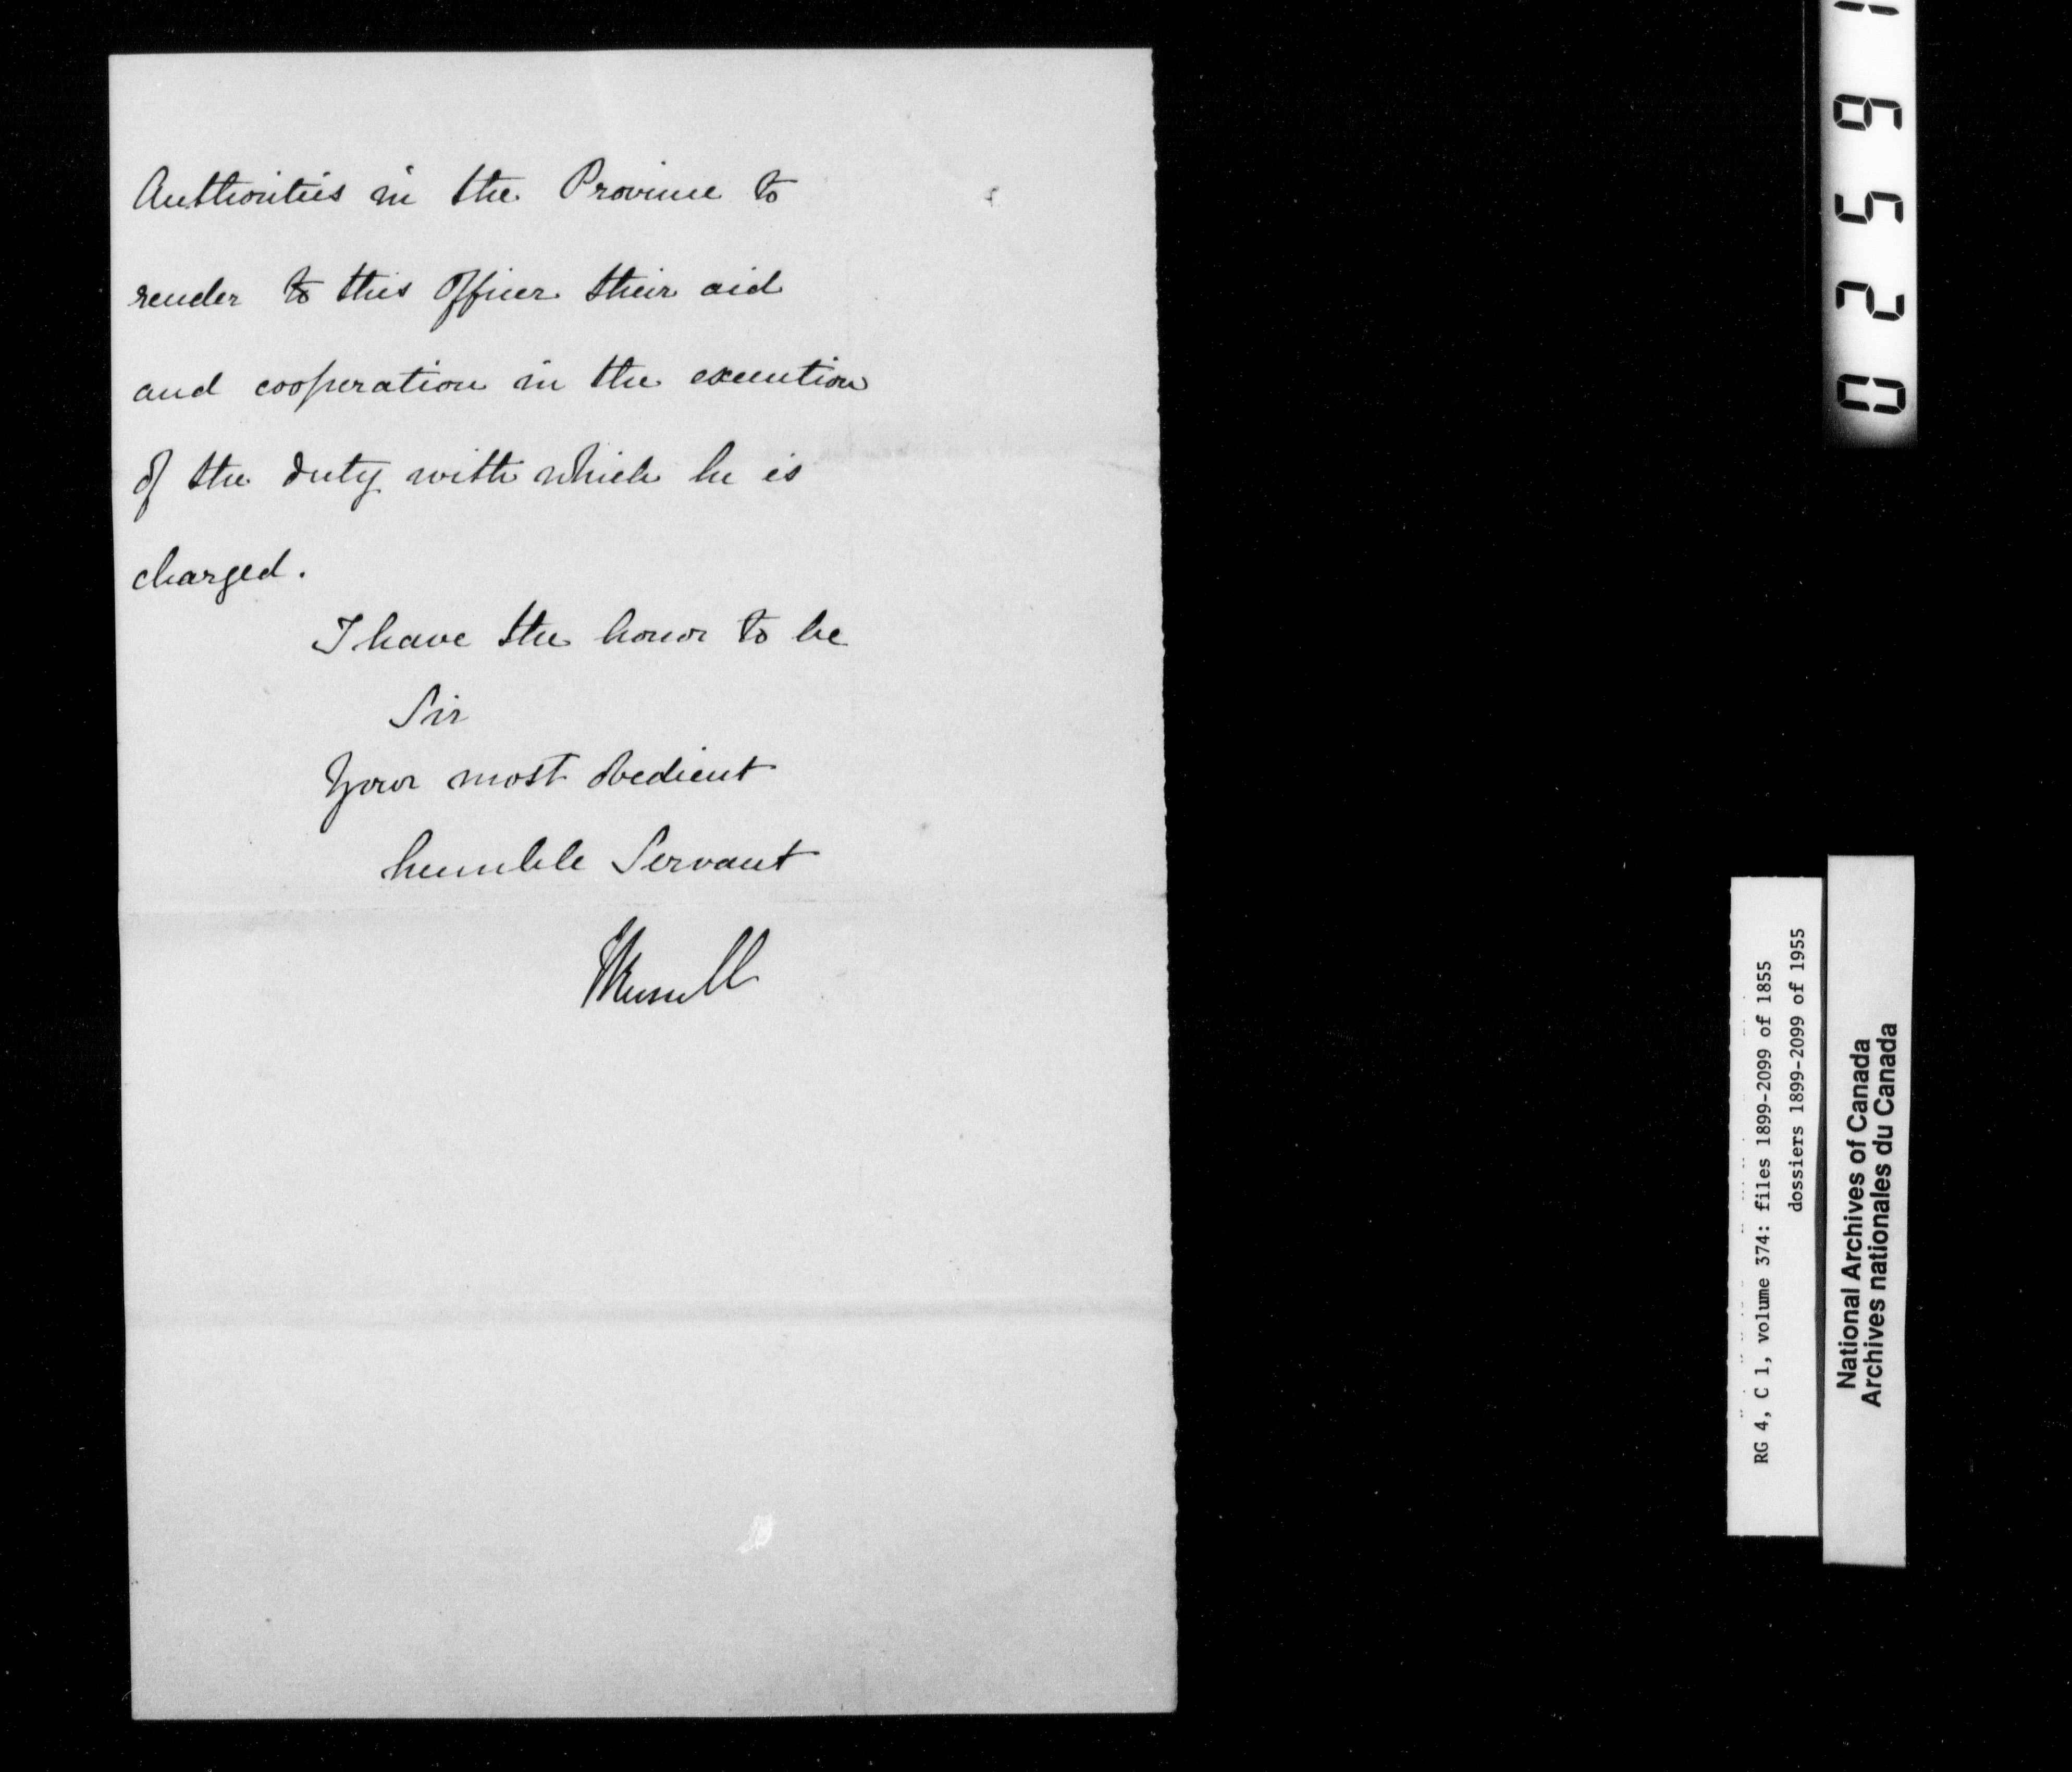 Authorities in the Province to
render to this Officer their aid
and cooperation in the execution
of the duty with which he is
charged.
I have the honor to be
Sir
Your most obedient
humble Servant
RG 4, C 1, volume 374: files 1899-2099 of 1855
dossiers 1899-2099 of 1955
National Archives of Canada
Archives nationales du Canada